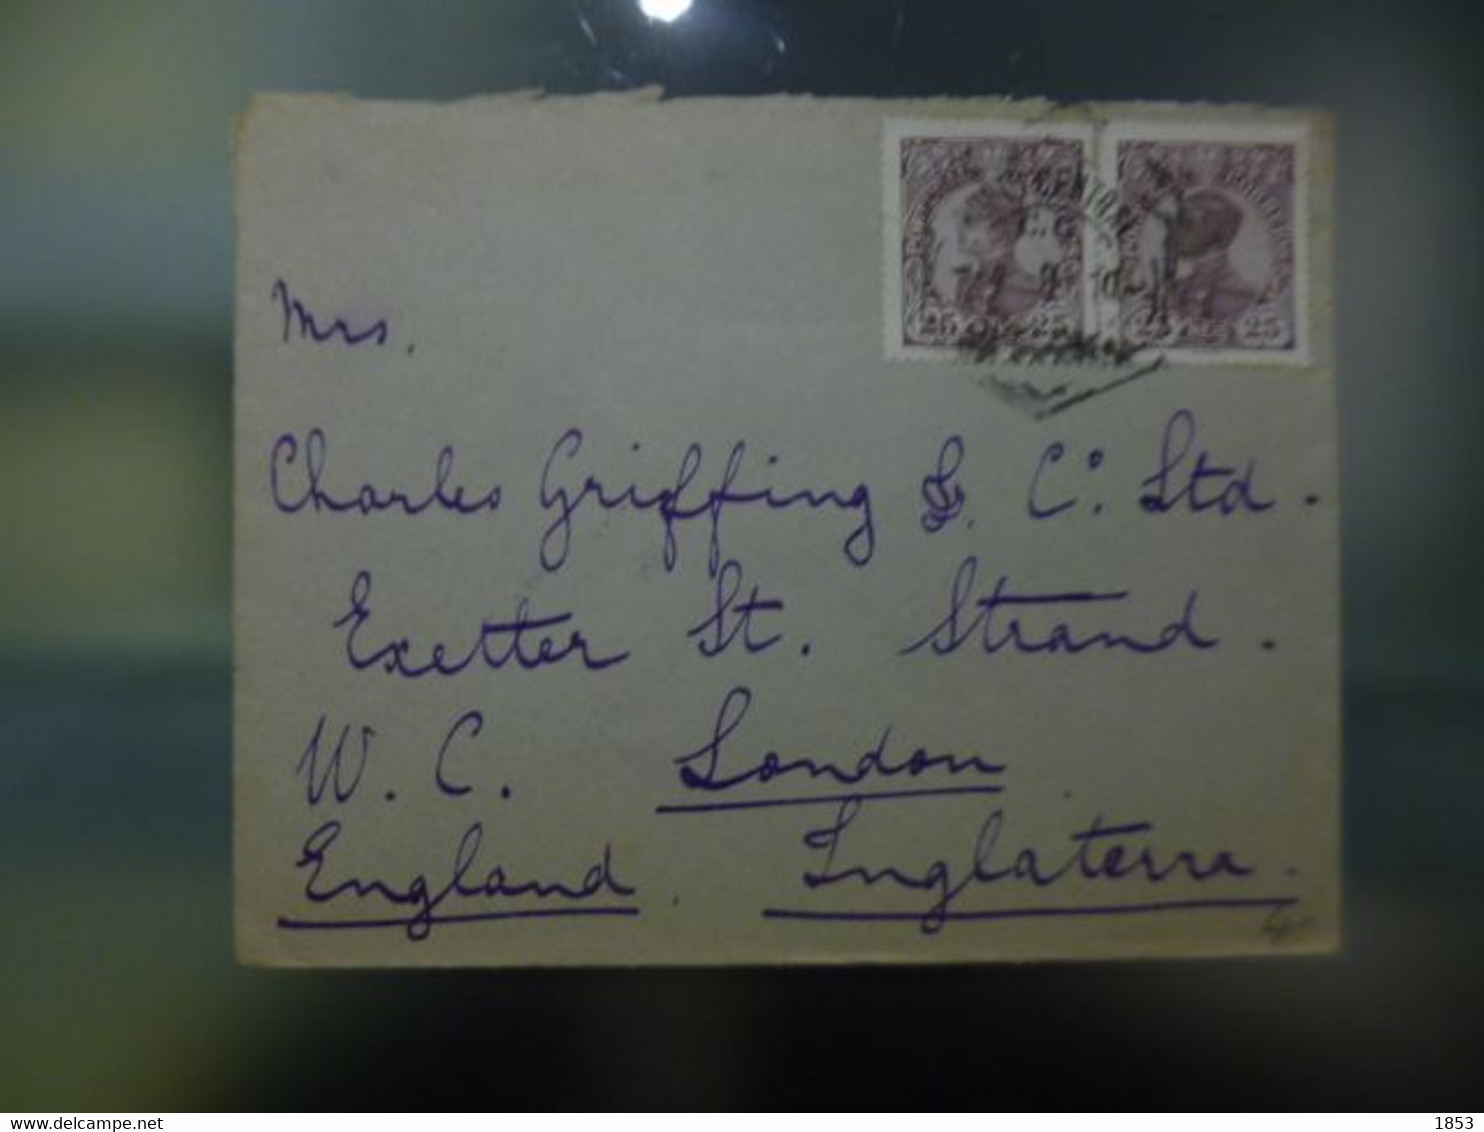 25 REIS 25
25 REIS 25
CENTRAL
Mrs.
Charles Griffing & Cº. Ltd.
Exetter St. Strand.
W. C. London
England. Inglaterra.
delcampe.net
1853